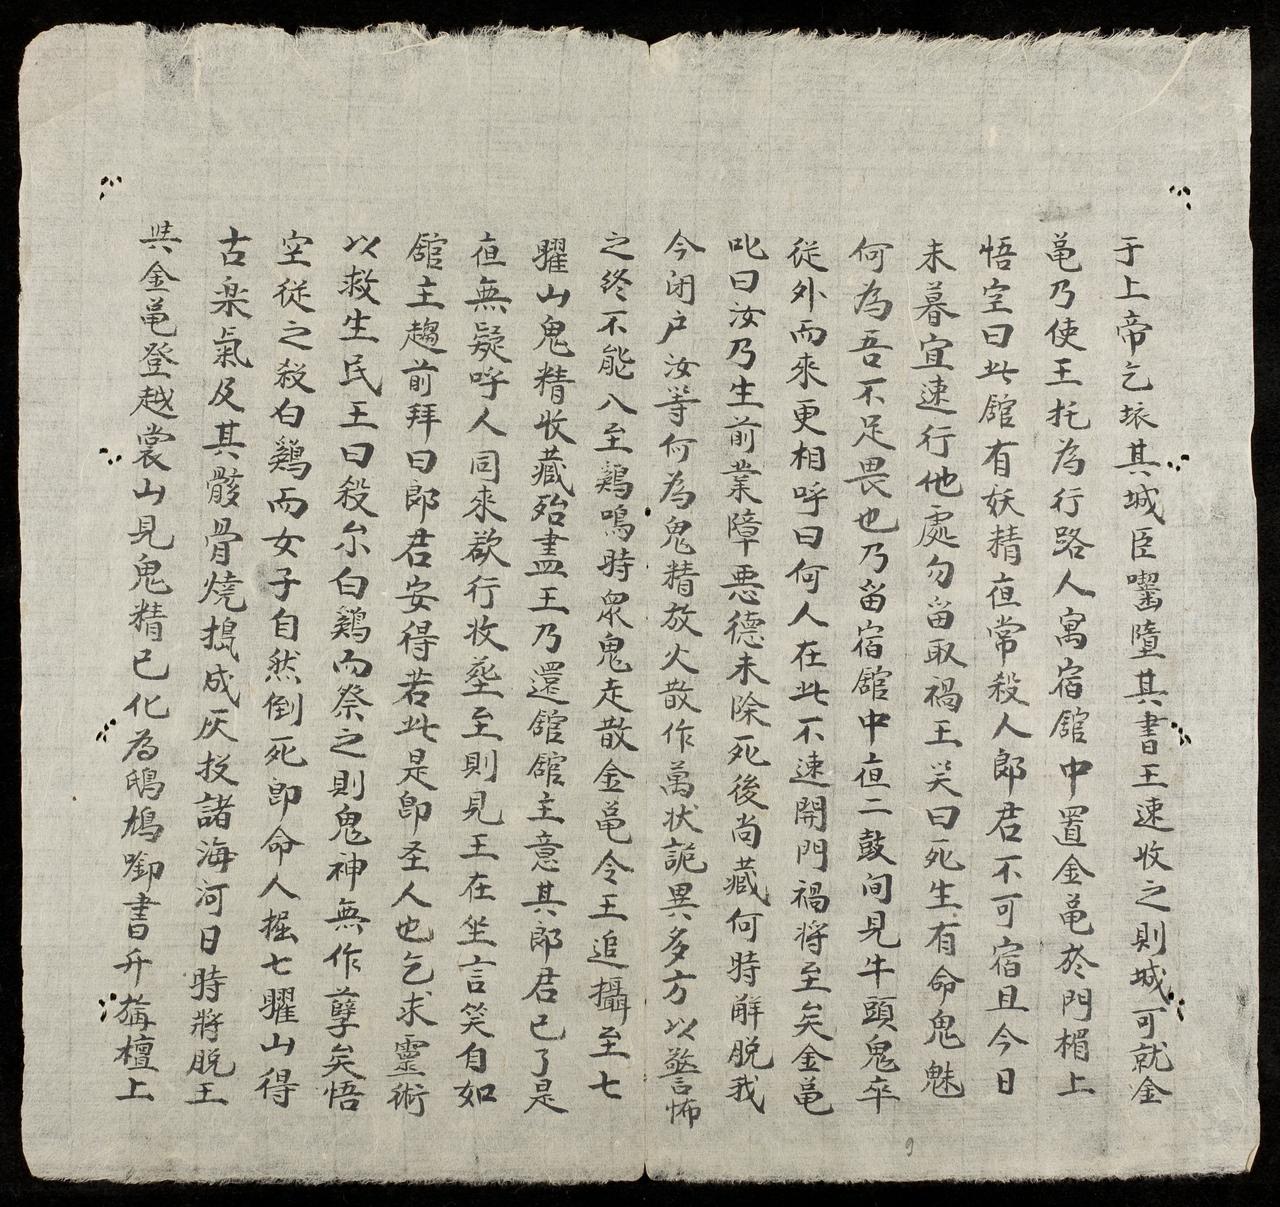 于上帝乞壊其城臣囓墮其書王速收之則城可就金
亀乃使王托為行路人寓宿舘中置金亀於門楣上
悟空曰此舘有妖精夜常殺人郎君不可宿且今日
未暮宜速行他處勿留取禍王笑曰死生有命鬼魅
何為吾不足畏也乃留宿舘中夜二鼓间見牛頭鬼卒
從外而來更相呼曰何人在此不速開門禍將至矣金亀
叱曰汝乃生前業障悪德未除死後尚藏何時解脱我
今闭户汝等何為鬼精放火散作萬状詭異多方以驚怖
之終不能入至鷄鳴時衆鬼走散金亀令王追攝至七
曜山鬼精收藏殆盡王乃還舘舘主意其郎君已了是
夜無疑呼人同來欲行收塟至則見王在坐言笑自如
舘主趨前拜曰郎君安得若此是即圣人也乞求靈術
以救生民王曰殺尔白鷄而祭之則鬼神無作孽矣悟
空從之殺白鷄而女子自然倒死即命人掘七曜山得
古楽氣及其骸骨燒搗成灰投諸海河日時將脱王
與金亀登越裳山見鬼精已化為鴟鳩啣書升旃檀上
9